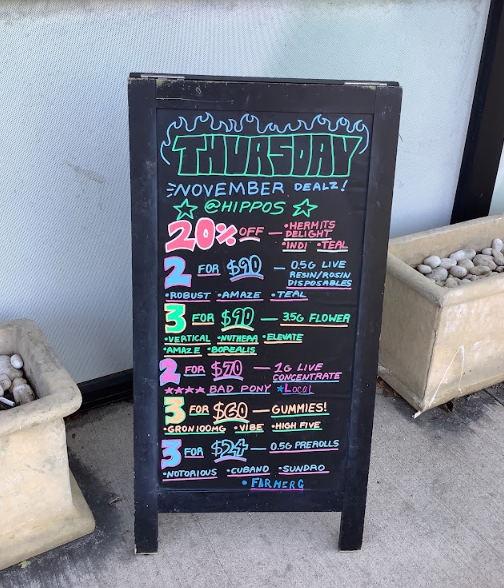 THURSDAY
NOVEMBER DEALZ!
@HIPPOS
20% OFF — •HERMITS
DELIGHT
•INDI •TEAL
2 FOR $90 — 0.5G LIVE
RESIN/ROSIN
DISPOSABLES
•ROBUST •AMAZE •TEAL
3 FOR $90 — 3.5G FLOWER
•VERTICAL •NUTHERA •ELEVATE
•AMAZE •BOREALIS
2 FOR $70 — 1G LIVE
CONCENTRATE
BAD PONY •LOCAL
3 FOR $60 — GUMMIES!
•GRON 100MG •VIBE •HIGH FIVE
3 FOR $24 — 0.5G PREROLLS
•NOTORIOUS •CUBANO •SUNDRO
•FARMER G